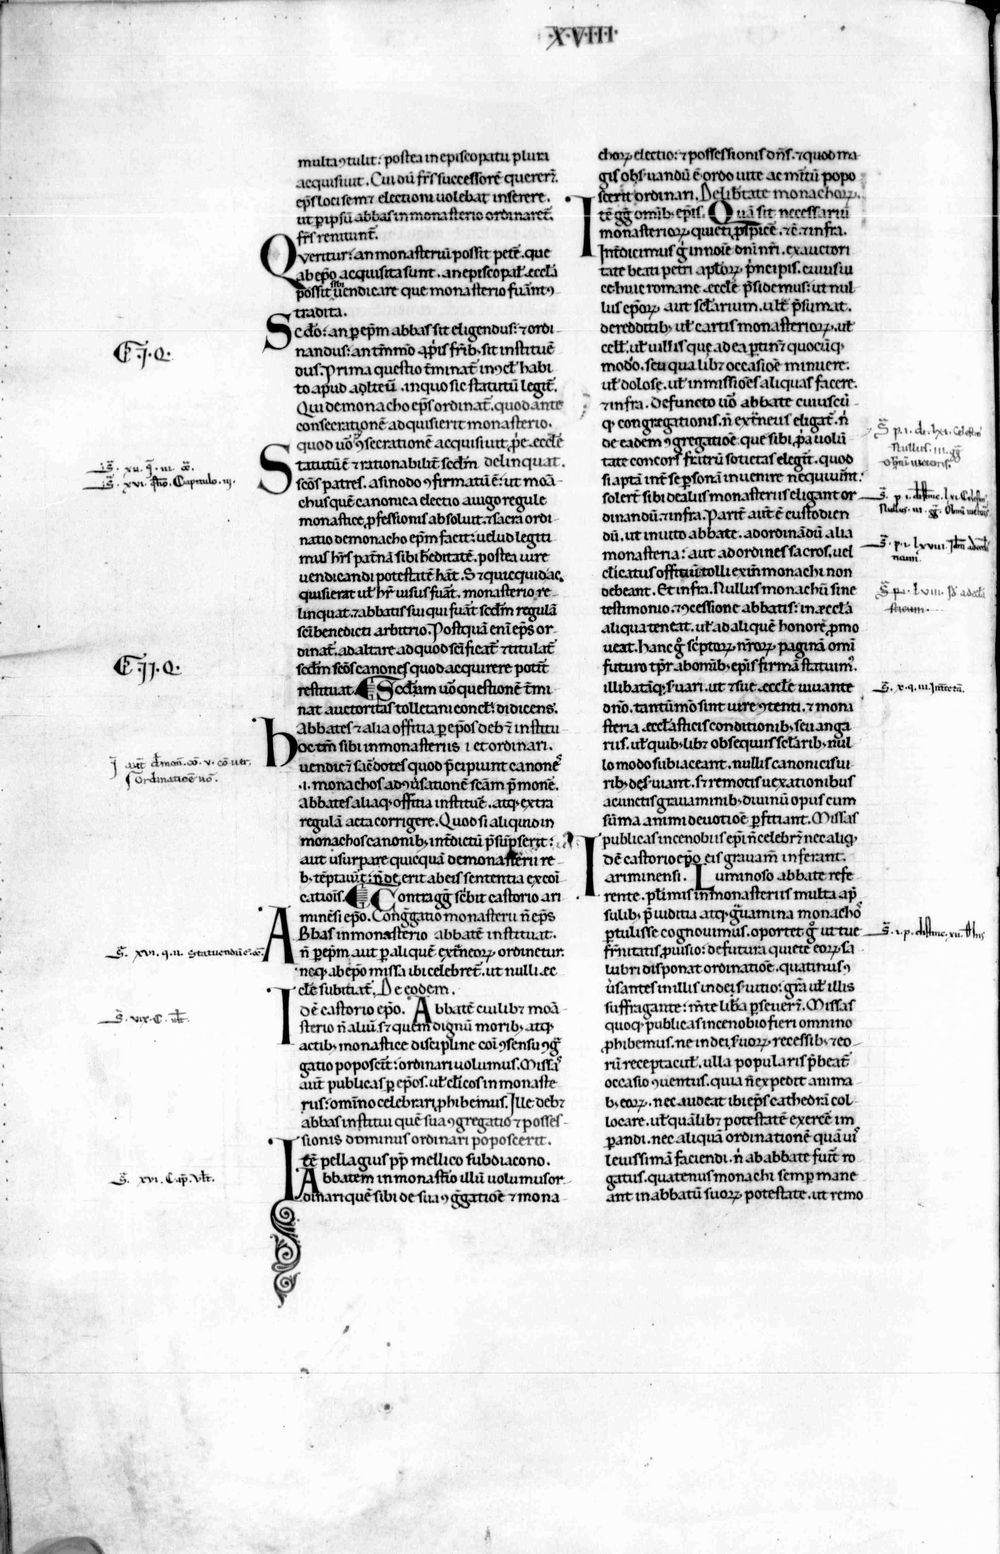 ·XVIII·
multa ꝯtulit: postea in episcopatu pluri
acquisiuit. Cui dū fr̄s successorē quererēt.
ep̄s loci sem̄ electioni uolebat inserere.
ut ꝑ ipsū abbas in monasterio ordinaretᷓ.
fr̄s renuunt.
Queritur: an monasteriū possit petē. que
ab ep̄o acquisita sunt. an episcopal᷒. eccl̄a
possit sibi uendicare que monasterio fuerint
tradita.
Scd̄o: an ꝑ ep̄m abbas sit eligendus: ⁊ ordi
nandus: an tm̄mo a ꝓpris fr̄ib; sit institue
dus. Prima questio t̄minat᷑ in ꝯcl᷒ habi
to apud adłteū. in quo sic statutū legit᷑.
Qui de monacho ep̄s ordinat᷑. quod ante
consecrationē adquisierit monasterio.
quod uō ꝯsecrationē acquisiuit, ꝓprie ecclē
Statutū ē ⁊ rationabilit᷑ secd̄m delinquat.
sc̄os patres. a sinodo ꝯfirmatū ē: ut mona
chus quē canonica electio a iugo regule
monastice, ꝓfessionis absoluit. ⁊ sacra ordi
natio de monacho ep̄m facit: uelud legiti
mus hr̄s pat̄na sibi h̄editatē. postea iure
uendicandi potestatē hāt. Sꝫ quicquid ac
quisierat ul᷒ hr̄ uisus fuāt. monasterio re
linquat. ⁊ abbatis sui qui fuāt secd̄m regulā
sc̄i benedicti arbitrio. Postquā eni ep̄s or
dinat᷑. ad altare ad quod sc̄ificat᷑ ⁊ titulat᷑
secd̄m sc̄os canones quod acquirere potūt
restituat. Secūdam uō questionē t̄mi
nat auctoritas tolletani concl᷒. di dicens.
Abbates ⁊ alia offitia ꝑ ep̄os deb᷑ institui
hoc tm̄ sibi in monasteriis ·i· et ordinari.
uendicēt sac̄dotes quod p̄cipiunt canones
·i· monachos ad ꝯuersationē sc̄am p̄monē.
abbates aliaq; offitia instituē. atq; extra
regulā acta corrigere. Quod si aliquid in
monachos canonib; int̄dictū p̄sūpserit:
aut usurpare quicquā de monasterii re
b; tēptauīt: n̄ deerit ab eis sententia excōi
catiois. Contra gḡ sc̄bit castorio ari
minēsi ep̄o. Congḡatio monasterii n̄ ep̄s
Abbas in monasterio abbatē instituat.
n̄ ꝑ ep̄m aut ꝑ aliquē ext̄neor᷒ ordinetur.
neq; ab ep̄o missa ibi celebret᷑. ut nulli ec
clē subitiat᷑. De eodem.
Idē castorio ep̄o. Abbatē cuilibꝫ mona
sterio n̄ aliū sꝫ quem dignū morib; atq;
actib; monastice discipline coi ꝯsensu ꝯg̃
gatio poposcerit: ordinari uolumus. Missas
aūt publicas ꝑ ep̄os. ul᷒ cl̄icos in monaste
riis: omīno celebrari, ꝓhibemus. Ille debꝫ
abbas institui quē sua ꝯgregatio ⁊ posses
sionis dominus ordinari poposcerit.
Itē pellagius pp̄ mellico subdiacono.
Abbatem in monast̄io illū uolumus or
dinari quē sibi de sua ꝯgḡatioē ⁊ mona
choꝝ electio: ⁊ possessionis dn̄s. ⁊ quod ma
gis obs̄uandū ē ordo uite ac mītū popo
scerit ordinari. De lib̄tate monachoꝝ.
Itē gḡ omib; ep̄is. Quā sit necessariū
monasterioꝝ quieti ꝓspicē. ⁊c̄ ⁊ infra.
Int̄dicimus g̊ in noīe dn̄i nr̄i. ex auctori
tate beati petri apl̄oꝝ p̄ncipis. cuius ui
ce huic romane ecclē p̄sidemus: ut nul
lus ep̄oꝝ aut sc̄lariū. ult̄ p̄sumat.
de redditib; ul᷒ cartis monasterioꝝ. ul᷒
cell᷒. ul᷒ uillis que ad ea ꝑtinꝫ quocūq;
modo. seu qualibꝫ occasioē minuere.
ul᷒ dolos̄. ul᷒ inmissiōes aliquas facere.
⁊ infra. Defuncto uō abbate cuiuscū
q; congregationis. n̄ ext̄neus eligat᷑. n̄
de eadem ꝯgregatioē que sibi, ꝓpria uolū
tate concors fr̄m societas elegerit. quod
si apta int̄ se ꝑsonā inuenire nequiuīnt:
solert̄ sibi de aliis monasteriis eligant or
dinandū. ⁊ infra. Parit̄ aut̄ ē custodien
dū. ut inuito abbate. ad ordinādū alia
monasteria: aut ad ordines sacros. uel
clicatus offitiū tolli exin̄ monachi non
debeant. Et infra. Nullus monachū sine
testimonio ⁊ ꝯcessione abbatis: in eccl̄a
aliqua teneat. ul᷒ ad aliquē honorē, ꝓmo
ueat. Hanc g̊ sc̄ptoꝝ nr̄oꝝ paginā omī
futuro tp̄r ab omīb; ep̄is firmā statuim᷒.
illibatāq; s̄uari. ut ⁊ sue ecclē iuuante
dn̄o. tantūmo sint iure ꝯtenti. ⁊ mona
steria eccl̄asticis conditionib; seu anga
riis. ul᷒ quib; libꝫ obsequiis sc̄larib; nul
lo modo subiaceant. nullis canonicis iu
rib; des̄uiant. sꝫ remotis uexationibus
ac cunctis grauaminib; diuinū opus cum
sūma animi deuotioē ꝑficiant. Missas
publicas in cenobiis ep̄i n̄ celebrꝫ nec aliq;
Idē castorio ep̄o eis grauam̄ inferant.
ariminensi. Luminoso abbate refe
rente. pl̄imis in monasteriis multa a p̄
sulib; p̄iuditia atq; g̃uamina monachos
ꝑtulisse cognouimus. oportet g̊ ut tue
fr̄nitatis, ꝓuisio: de futura quiete eoꝝ sa
lubri disponat ordinatioē. quatinus ꝯ
uersantes in illis in dei s̄uitio: gr̄a ul᷒ illis
suffragante: mente lib̄a ꝑseuerēt. Missas
quoq; publicas in cenobio fieri omnino
ꝓhibemus. ne in dei s̄uoꝝ recessib; ⁊ eo
rū receptacul᷒. ulla popularis p̄beat᷑
occasio ꝯuentus. quia n̄ expedit anima
b; eoꝝ. nec audeat ibi ep̄s cathedrā col
locare. ul᷒ quālibꝫ potestatē exercē im
ꝑandi. nec aliquā ordinationē quāuis
leuissimā faciendi. n̄ ab abbate fuit̄ ro
gatus. quatenus monachi semp̄ mane
ant in abbatū suoꝝ potestate. ut remo
·I· Q.
·II· Q.
S̄. xvi. Cap̄. vlt̄.